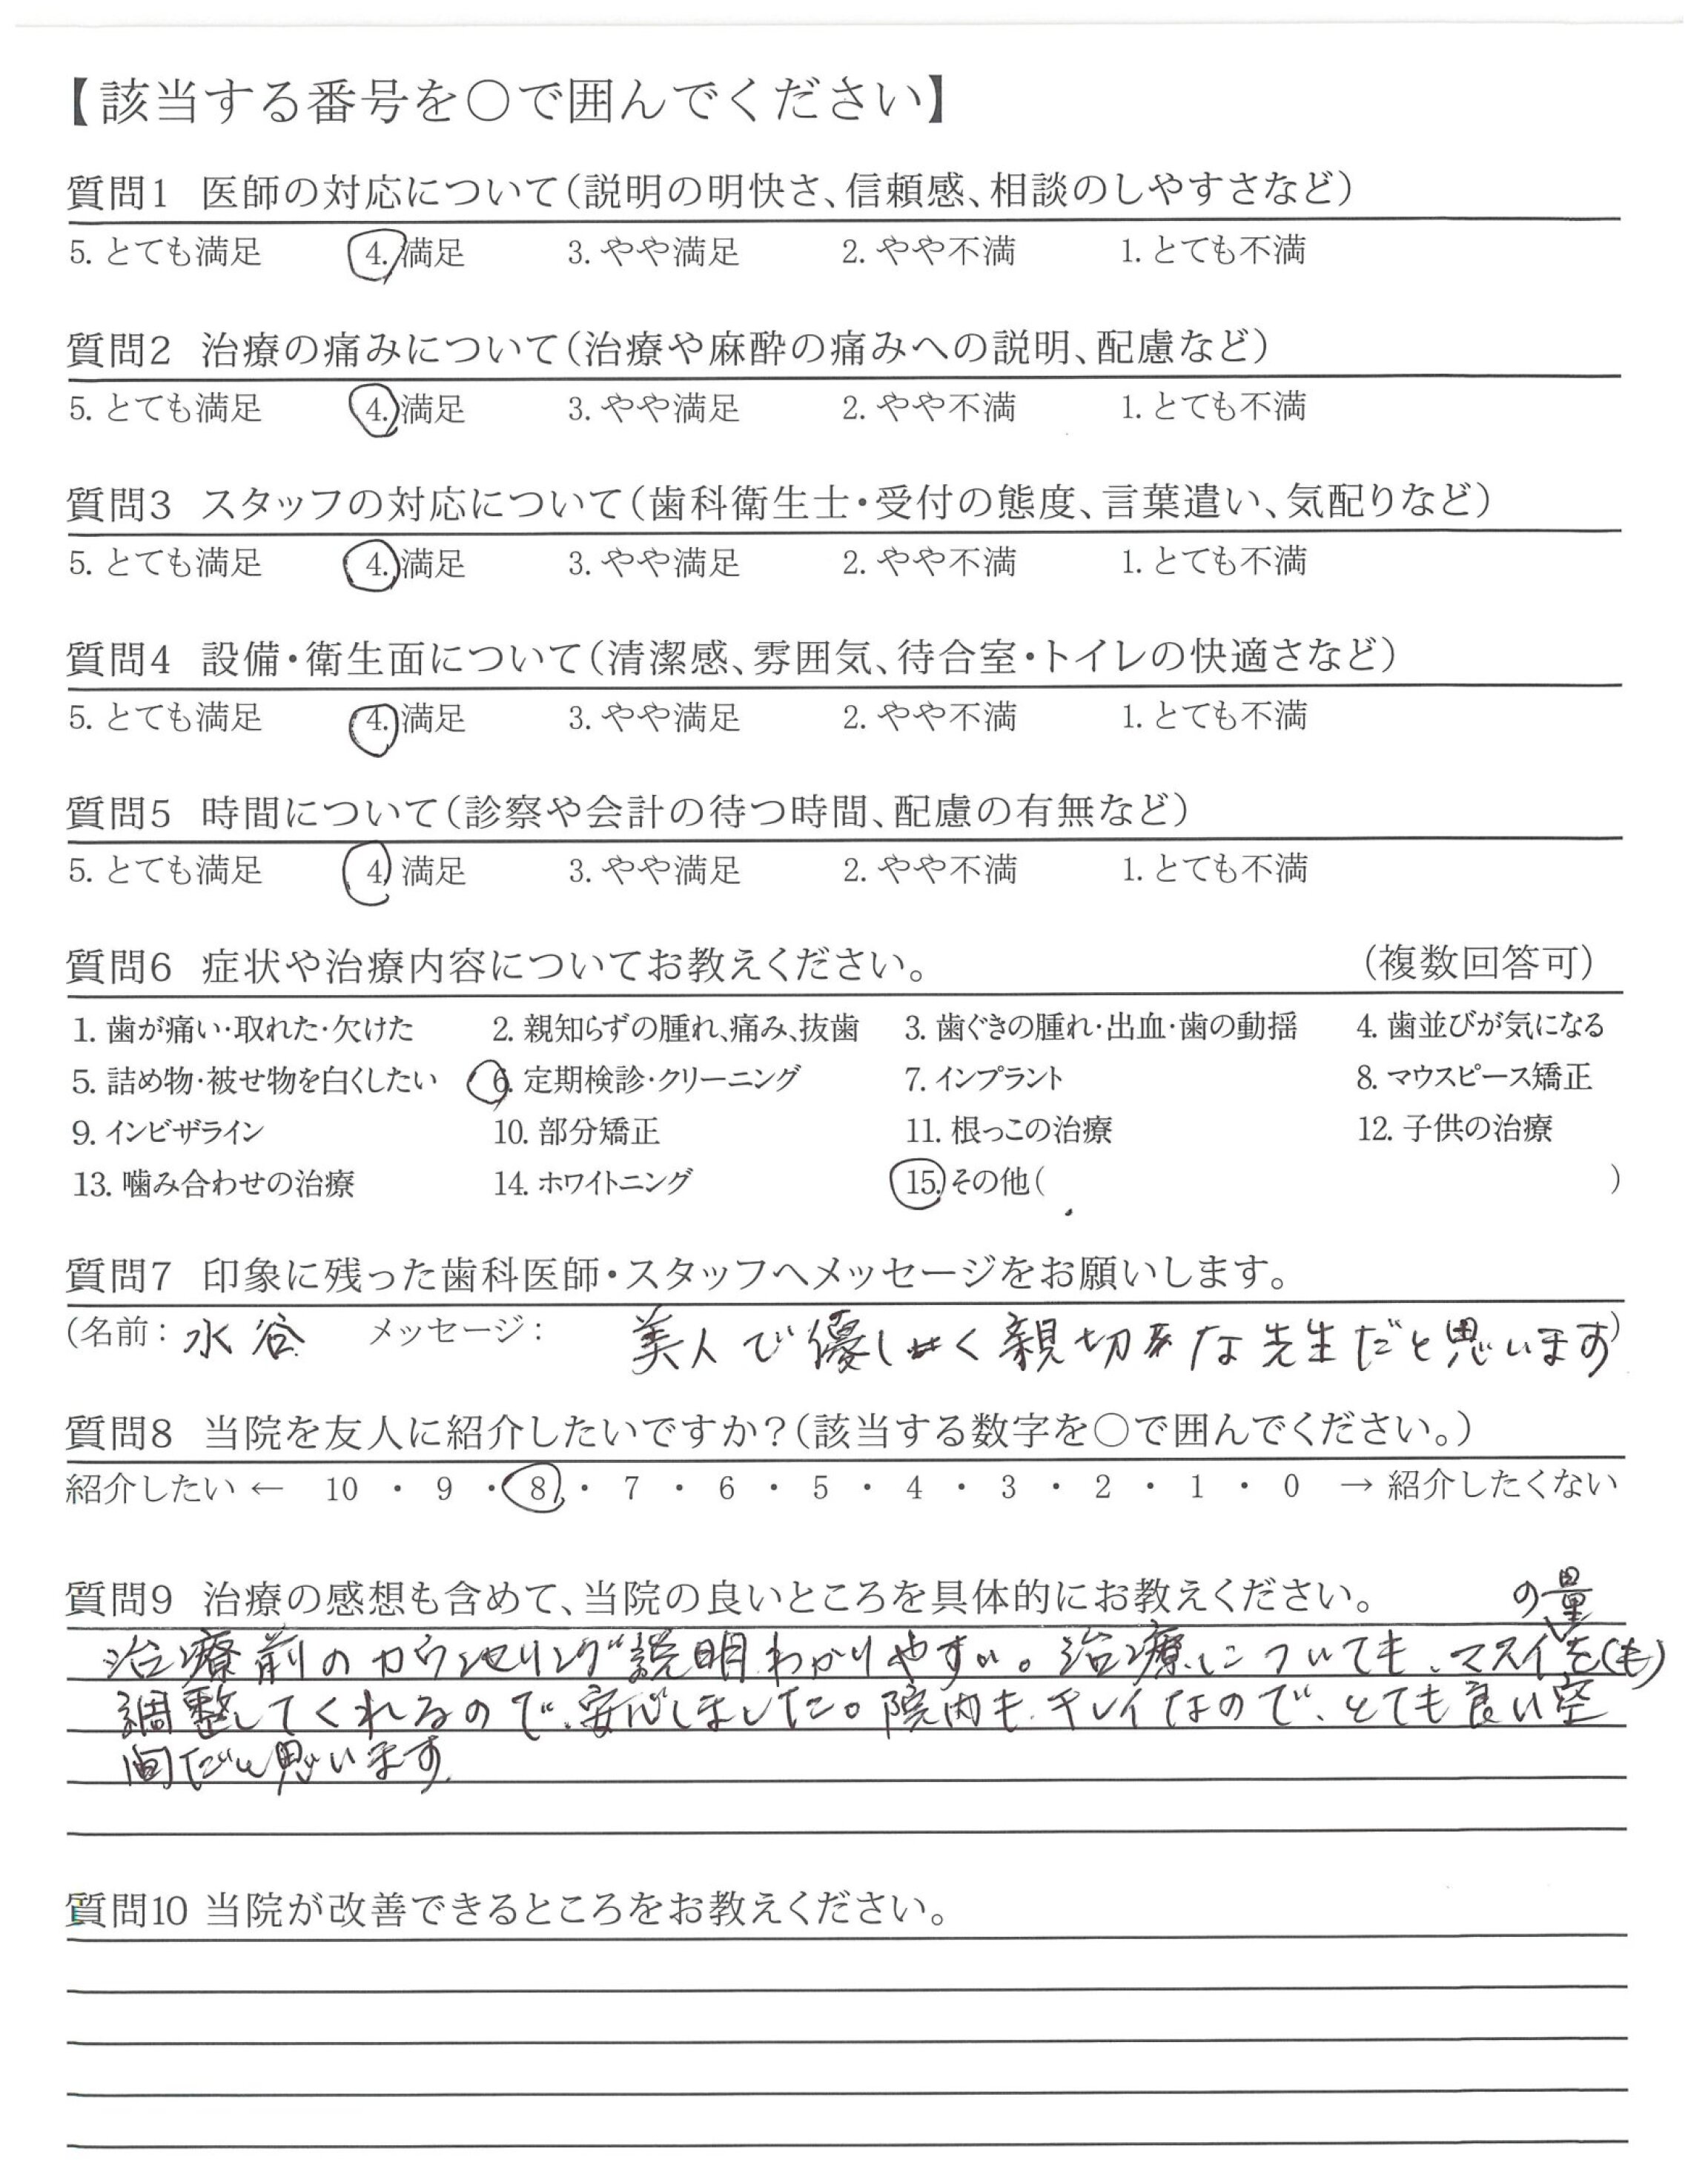 【該当する番号を○で囲んでください】
質問1 医師の対応について(説明の明快さ、信頼感、相談のしやすさなど)
5. とても満足 4. 満足 3. やや満足 2. やや不満 1. とても不満
質問2 治療の痛みについて(治療や麻酔の痛みへの説明、配慮など)
5. とても満足 4. 満足 3. やや満足 2. やや不満 1. とても不満
質問3 スタッフの対応について(歯科衛生士・受付の態度、言葉遣い、気配りなど)
5. とても満足 4. 満足 3. やや満足 2. やや不満 1. とても不満
質問4 設備・衛生面について(清潔感、雰囲気、待合室・トイレの快適さなど)
5. とても満足 4. 満足 3. やや満足 2. やや不満 1. とても不満
質問5 時間について(診察や会計の待つ時間、配慮の有無など)
5. とても満足 4. 満足 3. やや満足 2. やや不満 1. とても不満
質問6 症状や治療内容についてお教えください。 (複数回答可)
1. 歯が痛い・取れた・欠けた 2. 親知らずの腫れ、痛み、抜歯 3. 歯ぐきの腫れ・出血・歯の動揺 4. 歯並びが気になる
5. 詰め物・被せ物を白くしたい 6. 定期検診・クリーニング 7. インプラント 8. マウスピース矯正
9. インビザライン 10. 部分矯正 11. 根っこの治療 12. 子供の治療
13. 噛み合わせの治療 14. ホワイトニング 15. その他( )
質問7 印象に残った歯科医師・スタッフへメッセージをお願いします。
(名前: 水谷 メッセージ: 美人で優しく親切な先生だと思います)
質問8 当院を友人に紹介したいですか?(該当する数字を○で囲んでください。)
紹介したい ← 10 ・ 9 ・ 8 ・ 7 ・ 6 ・ 5 ・ 4 ・ 3 ・ 2 ・ 1 ・ 0 → 紹介したくない
質問9 治療の感想も含めて、当院の良いところを具体的にお教えください。
の量
治療前のカウンセリング説明わかりやすい。治療についても、マスイを(も)
調整してくれるので、安心しました。院内も、キレイなので、とても良い空
間だと思います。
質問10 当院が改善できるところをお教えください。